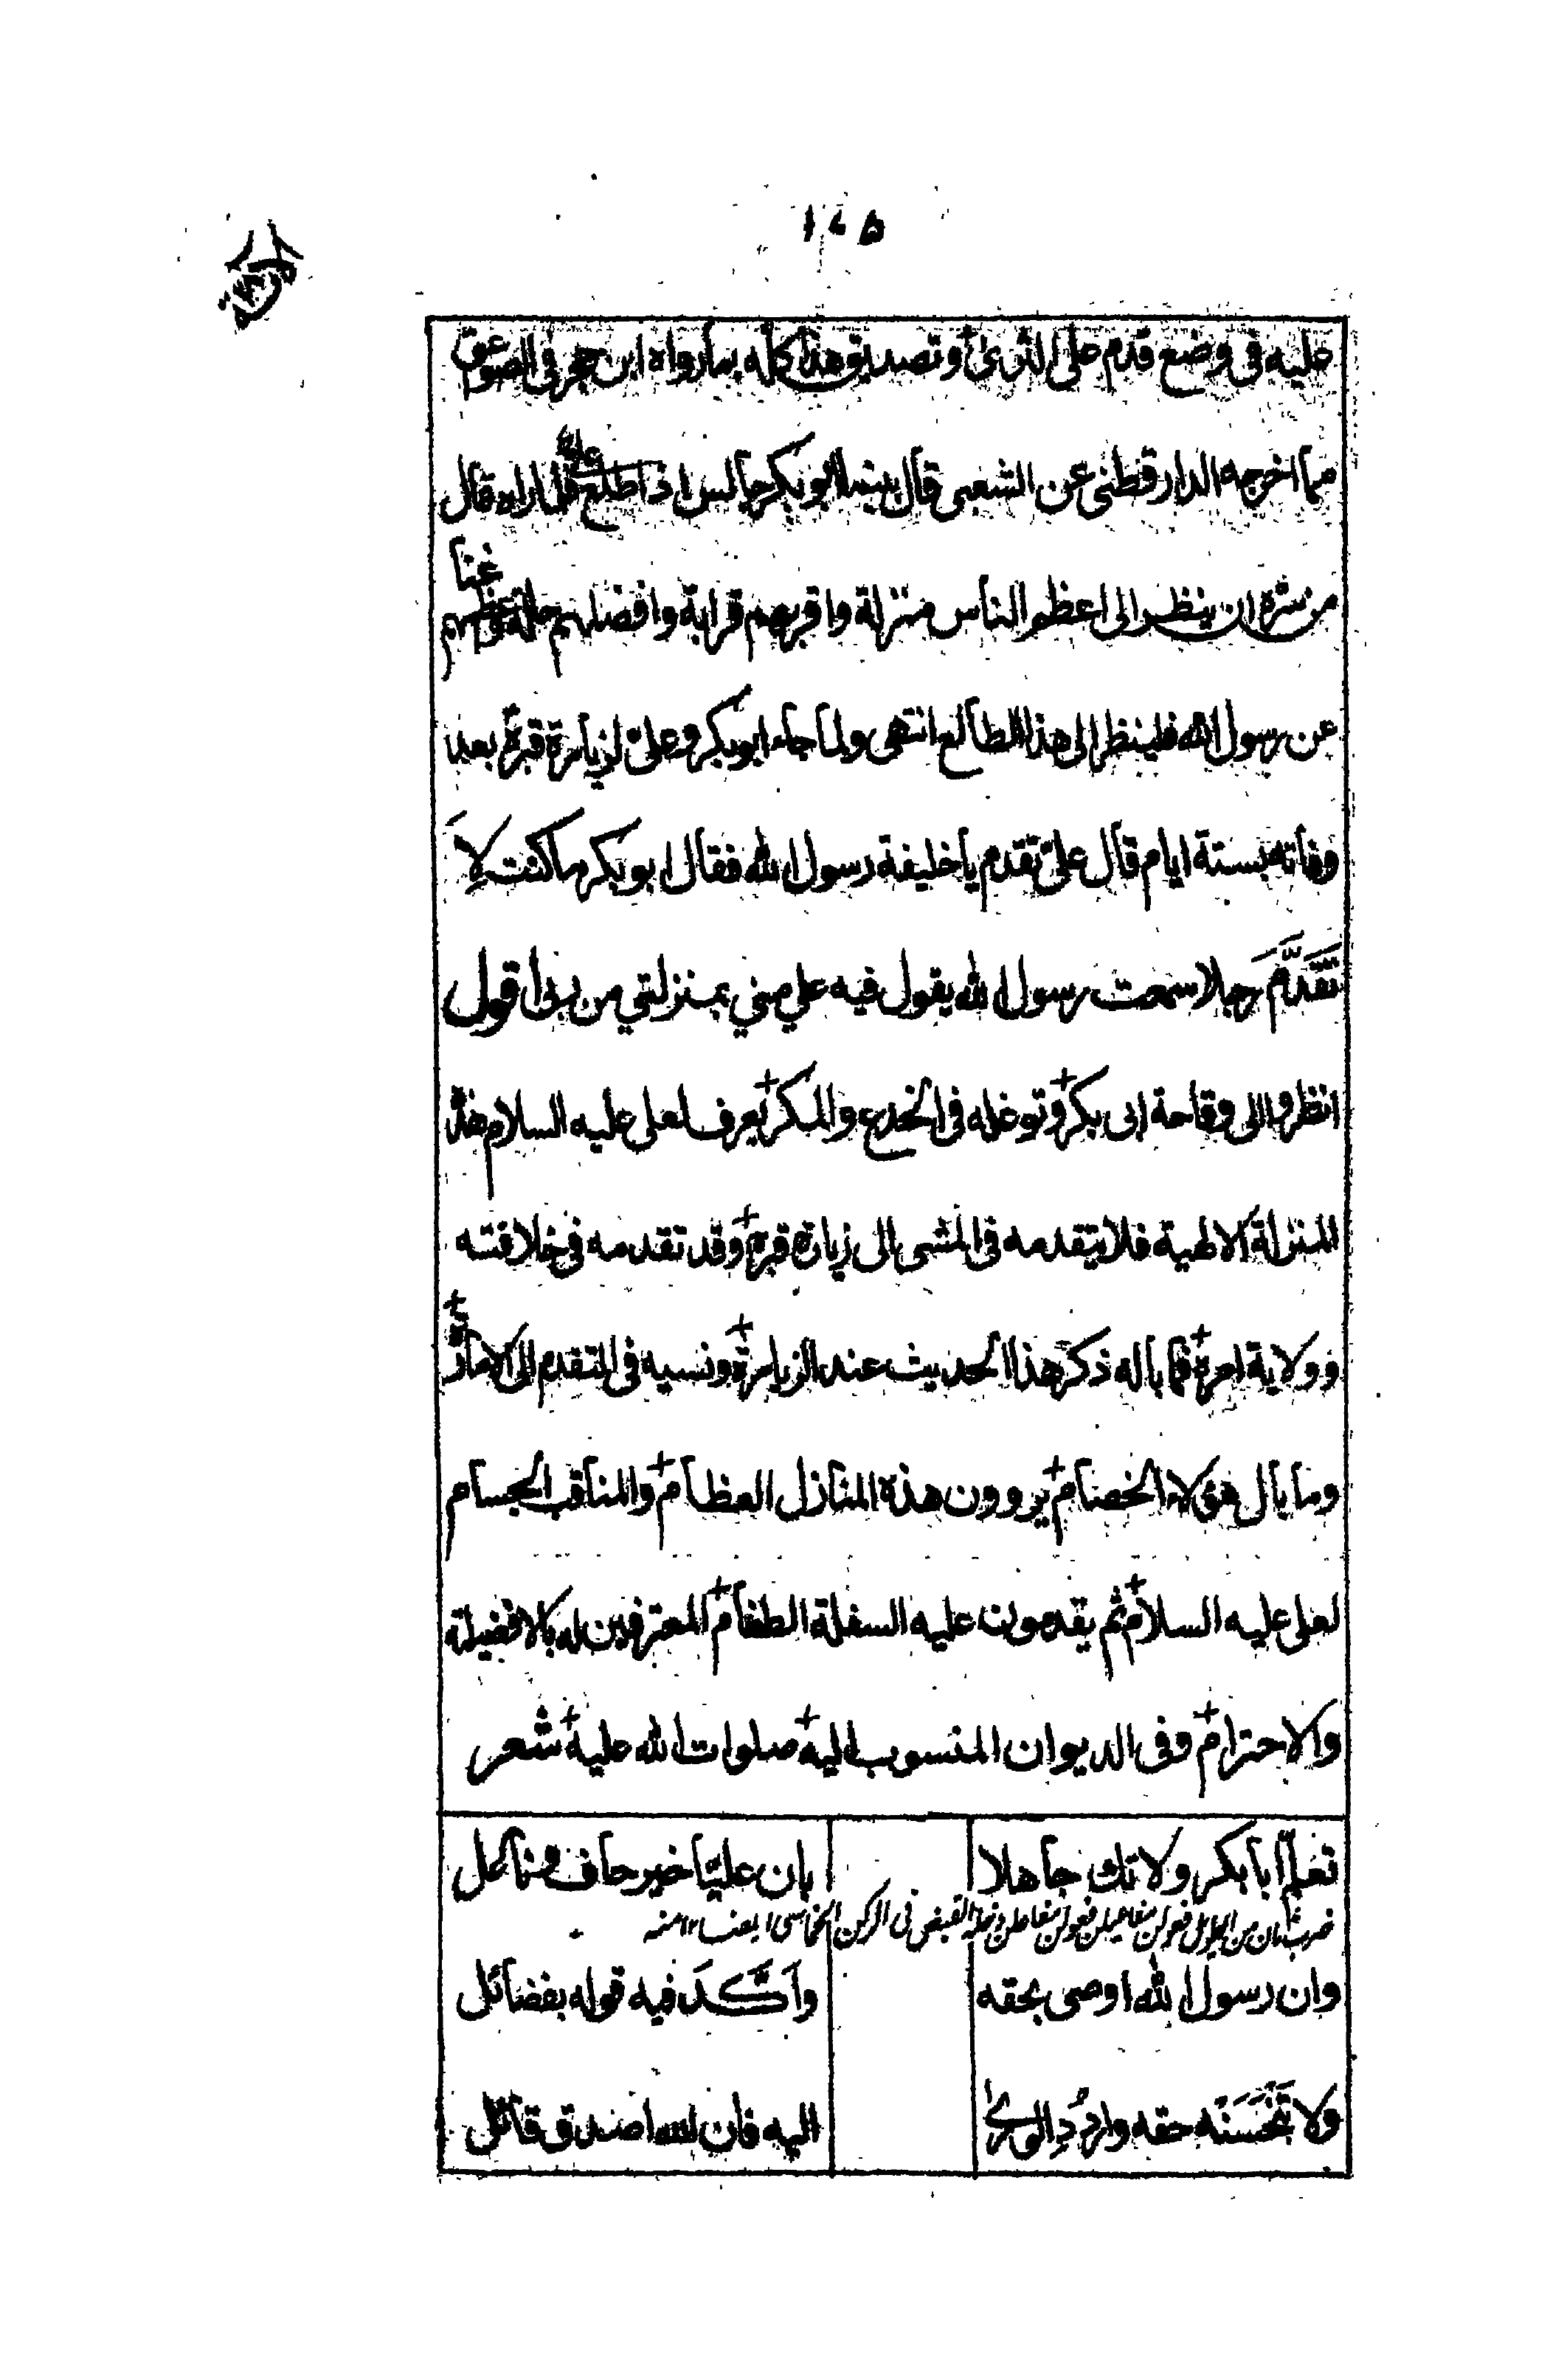 ١٤٥
عليه فى وضع قدم على الثرى وتصديق هذا كله بما رواه ابن حجر فى الصواعق
مما اخرجه الدارقطنى عن الشعبى قال بينما ابو بكر جالس اذ اطلع على فلما راه قال
من سره ان ينظر الى اعظم الناس منزلة واقربهم قرابة وافضلهم حالة واعظمهم غناً
عن رسول الله فلينظر الى هذا الطالع انتهى ولما جاء ابو بكر وعلى لزيارة قبره بعد
وفاته بستة ايام قال على تقدم يا خليفة رسول الله فقال ابو بكر ما كنت لِاَ
تَقَدَّمَ رجلا سمعت رسول الله يقول فيه علي مني بمنزلتي من ربى اقول
انظروا الى وقاحة ابى بكر وتوغله فى الخدع والمكر يعرف لعلى عليه السلام هذه
المنزلة الالهية فلا يتقدمه فى المشى الى زيارة قبره وقد تقدمه فى خلافته
وولاية امره فما باله ذكر هذا الحديث عند الزيارة ونسيه فى التقدم الى الامارة
وما بال هؤلاء الخصام يروون هذه المنازل العظام والمناقب الجسام
لعلى عليه السلام ثم يقدمون عليه السفلة الطغام المعترفين له بالافضيلة
والاحترام وفى الديوان المنسوب اليه صلوات الله عليه شعر
تعلم ابا بكر ولا تك جاهلا بان عليّا خير حاف وناعل
ضرب ثان من الطويل فعولن مفاعيلن فعولن مفاعلن القبض فى الركن الخماسى ايضا ١٢ منه
وان رسول الله اوصى بحقه واَكَّدَ فيه قوله بفضائل
ولا تَبْخَسَنْه حقه واردُدِ الورىٰ اليه فان الله اصدق قائل